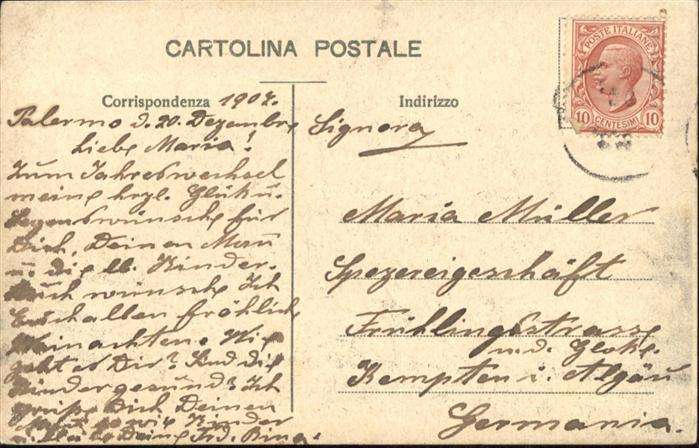 CARTOLINA POSTALE
Corrispondenza 1907.
Palermo d. 20. Dezembre
Liebe Maria!
Zum Jahreswechsel
meine hrzl. Glück u.
Segenswünsche für
Dich, Deinen Mann
u. die lb. Kinder.
Auch wünsche Ich
Euch allen fröhliche
Weihnachten. Wie
geht es Dir? Sind die
Kinder gesund? Ich
grüße Dich Deinen
Kinder
Deine
Indirizzo
Signora
Maria Müller
Spezereigeschäft
Frühlingsstrasse
z. d. Glocke.
Kempten i. Algäu
Germania.
POSTE ITALIANE
10 CENTESIMI 10